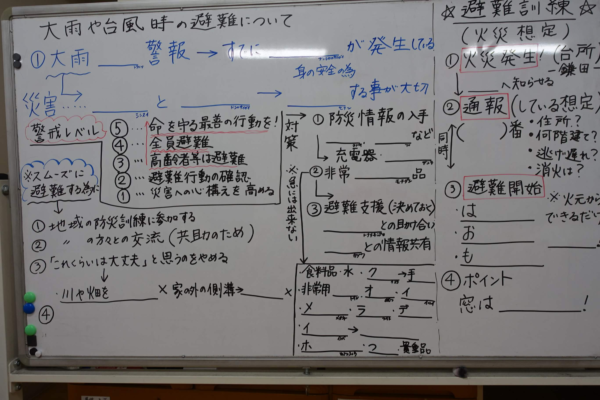 大雨や台風時の避難について
①大雨＿＿警報→すでに＿＿が発生している
身の安全の為
災害……＿＿と＿＿する事が大切
警戒レベル
⑤…命を守る最善の行動を!
④…全員避難
③…高齢者等は避難
②…避難行動の確認
①…災害への心構えを高める
※スムーズに
避難する為に
①地域の防災訓練に参加する
② 〃 の方々との交流(共助のため)
③「これくらいは大丈夫」と思うのをやめる
・川や畑を＿＿× 家の外の側溝→＿＿×
④
対策
※急には出来ない
①防災情報の入手
など
充電器・
②非常＿＿品
③避難支援(決めておく)
＿＿との助け合い
＿＿との情報共有
・食料品・水・ク＿＿→手
・非常用＿＿・オ＿＿・イ
・メ＿＿・ラ＿＿・デ
・イ＿＿→＿＿
・ホ＿＿・つ＿＿・貴重品
☆避難訓練☆
(火災想定)
①火災発生!(台所)
鎌田
へ知らせる
②通報(している想定)
同時
(　　)番
・住所?
・何階建て?
・逃げ遅れ?
・消火は?
③避難開始
・は
・お
・も
※火元から
できるだけ
④ポイント
窓は＿＿!